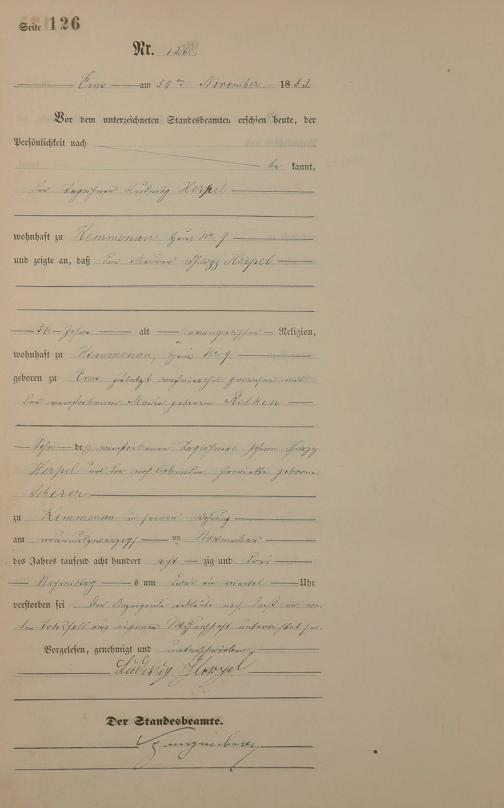 Seite 126
Nr. 126
Ems am 30ten November 1883.
Vor dem unterzeichneten Standesbeamten erschien heute, der
Persönlichkeit nach
be kannt,
der Tagelöhner Ludwig Herpel
wohnhaft zu Kemmenau Haus No 9
und zeigte an, daß der Maurer Philipp Herpel
36 Jahre alt evangelischer Religion,
wohnhaft zu Kemmenau, Haus No 9
geboren zu Ems zuletzt verheirathet gewesen mit
der verstorbenen Marie geborene
Sohn des verstorbenen Tagelöhners Johann Philipp
Herpel und der noch lebenden Henriette geborene
Scherer
zu Kemmenau in seiner Wohnung
am neunundzwanzigsten November
des Jahres tausend acht hundert acht zig und drei
Nachmittag s um drei ein viertel Uhr
verstorben sei Der Anzeigende erklärte noch daß er von
dem Todesfall aus eigener Wissenschaft unterrichtet sei.
Vorgelesen, genehmigt und unterschrieben
Ludwig Herpel
Der Standesbeamte.